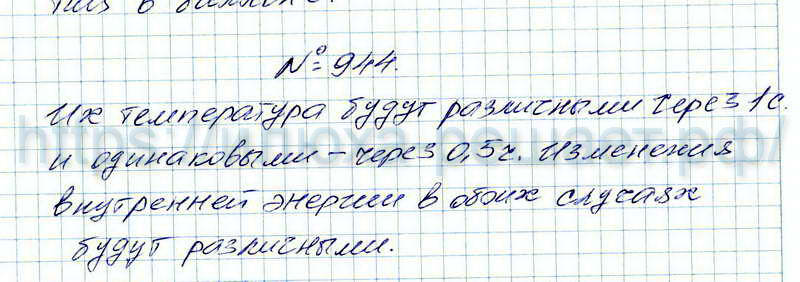 № 944.
Их температура будут различными через 1 с.
и одинаковыми – через 0,5 ч. Изменения
внутренней энергии в обоих случаях
будут различными.